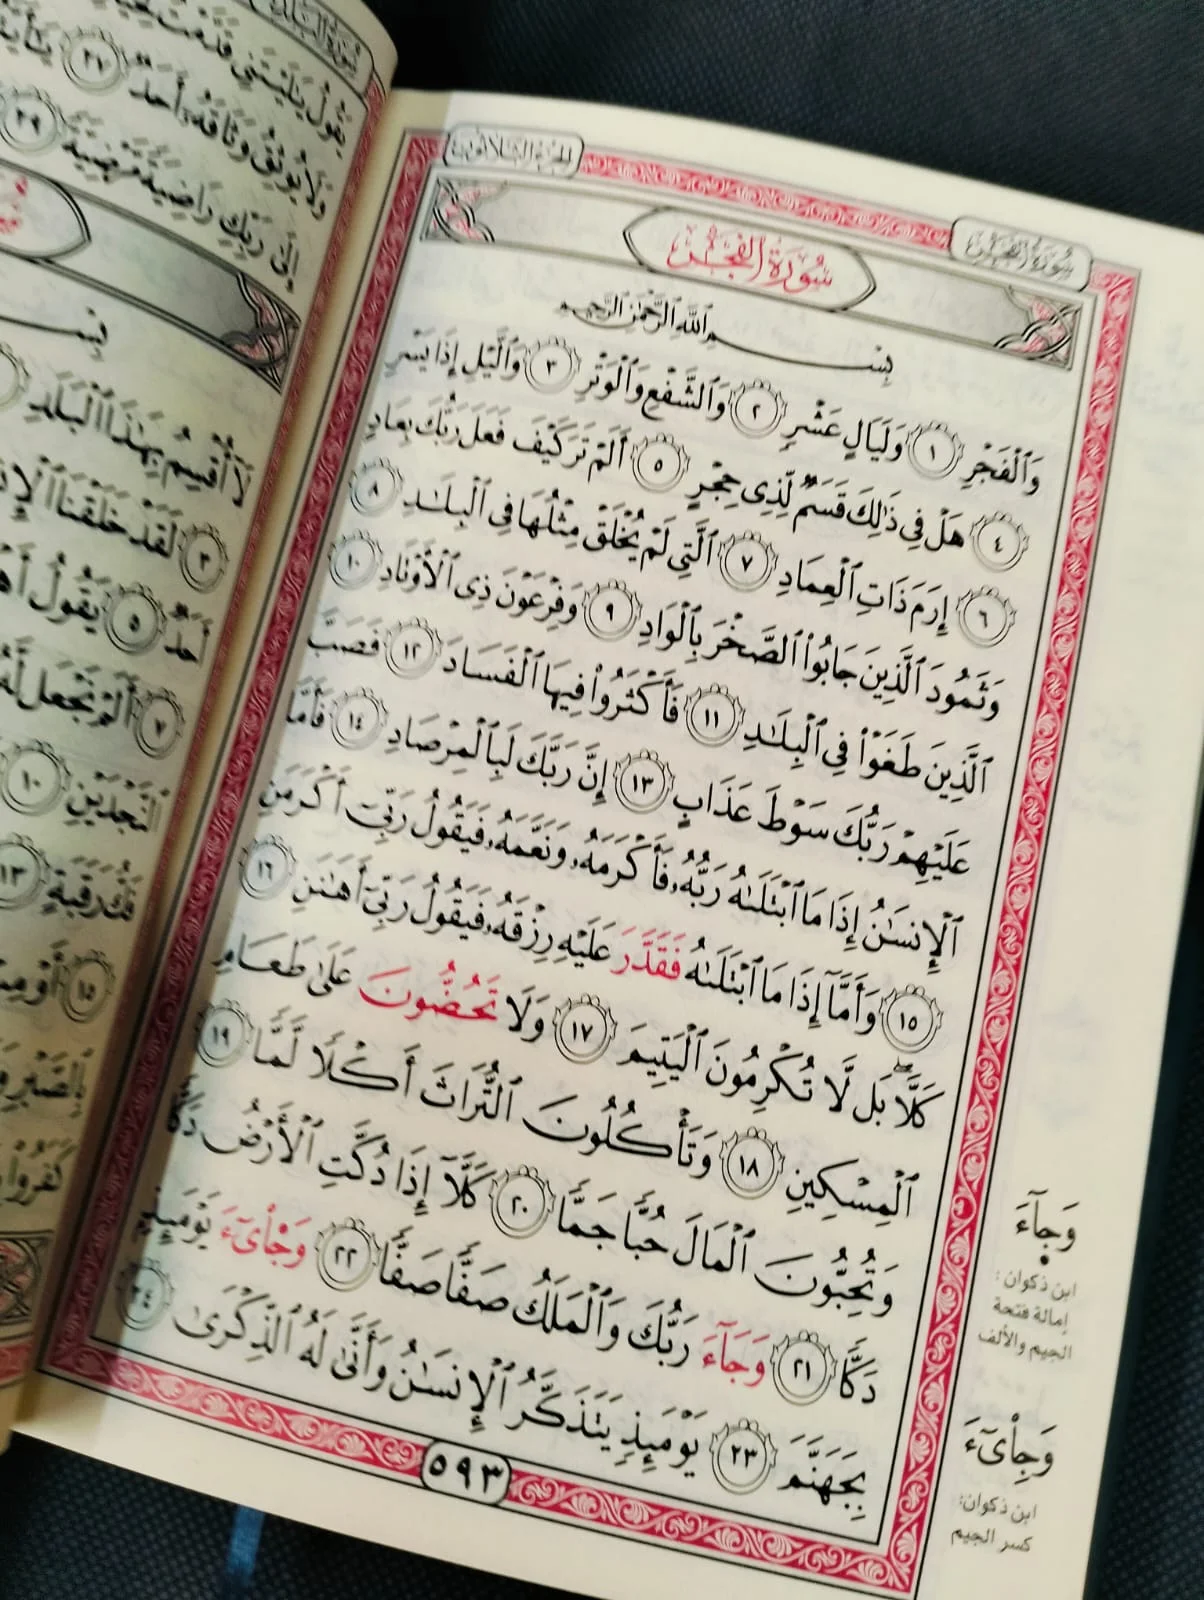 الجزء الثلاثون
سُورَةُ الفَجْر
سُورَةُ الفَجْر
بِسْمِ ٱللَّهِ ٱلرَّحْمَٰنِ ٱلرَّحِيمِ
وَٱلْفَجْرِ ١ وَلَيَالٍ عَشْرٍ ٢ وَٱلشَّفْعِ وَٱلْوَتْرِ ٣ وَٱلَّيْلِ إِذَا يَسْرِ
٤ هَلْ فِي ذَٰلِكَ قَسَمٌ لِّذِي حِجْرٍ ٥ أَلَمْ تَرَ كَيْفَ فَعَلَ رَبُّكَ بِعَادٍ
٦ إِرَمَ ذَاتِ ٱلْعِمَادِ ٧ ٱلَّتِي لَمْ يُخْلَقْ مِثْلُهَا فِي ٱلْبِلَٰدِ ٨
وَثَمُودَ ٱلَّذِينَ جَابُوا۟ ٱلصَّخْرَ بِٱلْوَادِ ٩ وَفِرْعَوْنَ ذِي ٱلْأَوْتَادِ ١٠
ٱلَّذِينَ طَغَوْا۟ فِي ٱلْبِلَٰدِ ١١ فَأَكْثَرُوا۟ فِيهَا ٱلْفَسَادَ ١٢ فَصَبَّ
عَلَيْهِمْ رَبُّكَ سَوْطَ عَذَابٍ ١٣ إِنَّ رَبَّكَ لَبِٱلْمِرْصَادِ ١٤ فَأَمَّا
ٱلْإِنسَٰنُ إِذَا مَا ٱبْتَلَىٰهُ رَبُّهُۥ فَأَكْرَمَهُۥ وَنَعَّمَهُۥ فَيَقُولُ رَبِّيٓ أَكْرَمَنِ
١٥ وَأَمَّآ إِذَا مَا ٱبْتَلَىٰهُ فَقَدَّرَ عَلَيْهِ رِزْقَهُۥ فَيَقُولُ رَبِّيٓ أَهَٰنَنِ ١٦
كَلَّا ۖ بَل لَّا تُكْرِمُونَ ٱلْيَتِيمَ ١٧ وَلَا تَحُضُّونَ عَلَىٰ طَعَامِ
ٱلْمِسْكِينِ ١٨ وَتَأْكُلُونَ ٱلتُّرَاثَ أَكْلًا لَّمًّا ١٩
وَتُحِبُّونَ ٱلْمَالَ حُبًّا جَمًّا ٢٠ كَلَّآ إِذَا دُكَّتِ ٱلْأَرْضُ دَكًّا
دَكًّا ٢١ وَجَآءَ رَبُّكَ وَٱلْمَلَكُ صَفًّا صَفًّا ٢٢ وَجِاْيٓءَ يَوْمَئِذِۭ
بِجَهَنَّمَ ٢٣ يَوْمَئِذٍ يَتَذَكَّرُ ٱلْإِنسَٰنُ وَأَنَّىٰ لَهُ ٱلذِّكْرَىٰ ٢٤
٥٩٣
وَجَآءَ
ابن ذكوان:
إمالة فتحة
الجيم والألف
وَجِاْيٓءَ
ابن ذكوان:
كسر الجيم
سُورَةُ البَلَد
يَقُولُ يَٰلَيْتَنِي قَدَّمْتُ
وَلَا يُوثِقُ وَثَاقَهُۥٓ أَحَدٌ ٢٧
إِلَىٰ رَبِّكِ رَاضِيَةً مَّرْضِيَّةً ٢٩
بِسْ
لَآ أُقْسِمُ بِهَٰذَا ٱلْبَلَدِ
٣ لَقَدْ خَلَقْنَا ٱلْإِن
أَحَدٌ ٥ يَقُولُ أَهْ
٧ أَلَمْ نَجْعَل لَّهُ
ٱلنَّجْدَيْنِ ١٠
فَكُّ رَقَبَةٍ ١٣
١٥ أَوْ مِ
بِٱلصَّبْرِ وَ
كَفَرُوا۟